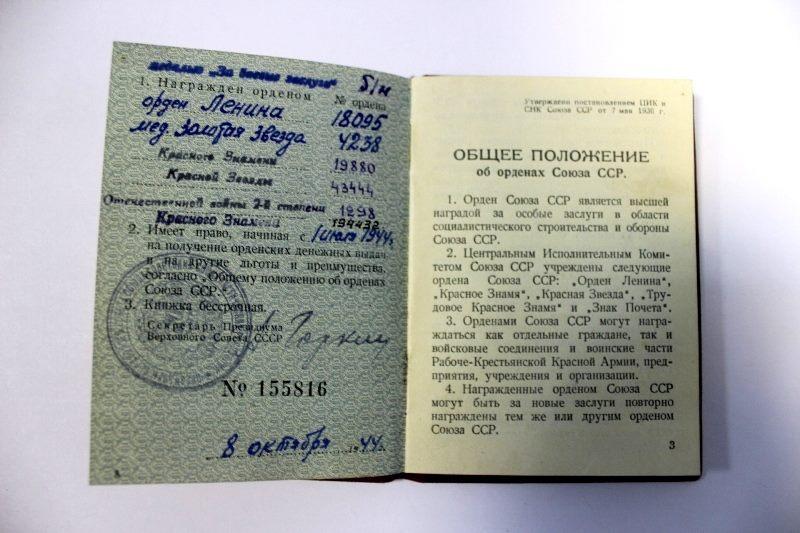 медалью „За боевые заслуги“ б/н
1. Награжден орденом № ордена
орден Ленина 18095
мед. Золотая Звезда 4238
Красного Знамени 19880
Красной Звезды 43444
Отечественной войны 2-й степени 1298
Красного Знамени 194432
2. Имеет право, начиная с 1 июля 1944г.
на получение орденских денежных выдач
и на другие льготы и преимущества,
согласно „Общему положению об орденах
Союза ССР.“
3. Книжка бессрочная.
Секретарь Президиума
Верховного Совета СССР Горкин
№ 155816
8 октября 1944г.
Утверждено постановлением ЦИК и
СНК Союза ССР от 7 мая 1936 г.
ОБЩЕЕ ПОЛОЖЕНИЕ
об орденах Союза ССР.
1. Орден Союза ССР является высшей
наградой за особые заслуги в области
социалистического строительства и обороны
Союза ССР.
2. Центральным Исполнительным Коми-
тетом Союза ССР учреждены следующие
ордена Союза ССР: „Орден Ленина“,
„Красное Знамя“, „Красная Звезда“, „Тру-
довое Красное Знамя“ и „Знак Почета“.
3. Орденами Союза ССР могут награ-
ждаться как отдельные граждане, так и
войсковые соединения и воинские части
Рабоче-Крестьянской Красной Армии, пред-
приятия, учреждения и организации.
4. Награжденные орденом Союза ССР
могут быть за новые заслуги повторно
награждены тем же или другим орденом
Союза ССР.
3